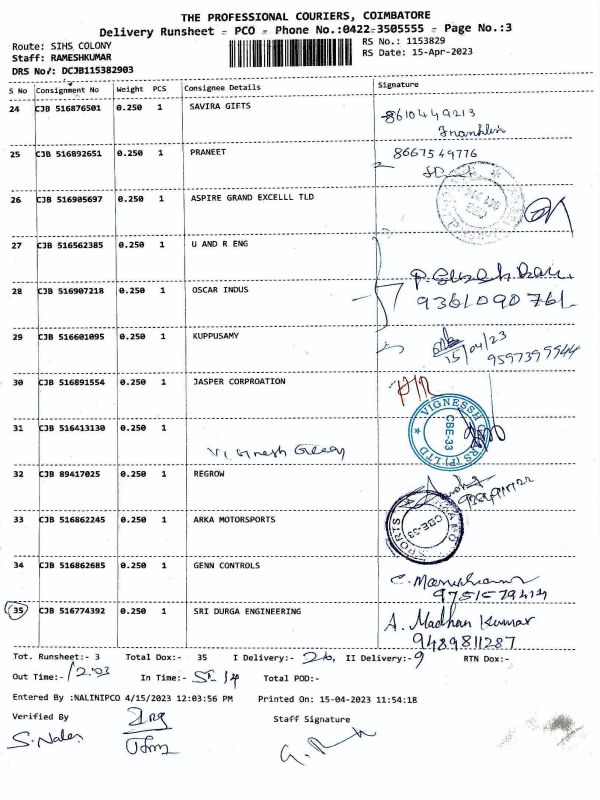 THE PROFESSIONAL COURIERS, COIMBATORE
Delivery Runsheet - PCO - Phone No.:0422-3505555 - Page No.:3
Route: SIHS COLONY
RS No.: 1153829
Staff: RAMESHKUMAR
RS Date: 15-Apr-2023
DRS No/: DCJB115382903
S No Consignment No Weight PCS Consignee Details Signature
24 CJB 516876501 0.250 1 SAVIRA GIFTS
8610449213
Franklin
25 CJB 516892651 0.250 1 PRANEET 8667549776
26 CJB 516905697 0.250 1 ASPIRE GRAND EXCELLL TLD
27 CJB 516562385 0.250 1 U AND R ENG
28 CJB 516907218 0.250 1 OSCAR INDUS
29 CJB 516601095 0.250 1 KUPPUSAMY
15/04/23
9597399944
30 CJB 516891554 0.250 1 JASPER CORPROATION
31 CJB 516413130 0.250 1
VIGNESSH GEARS (P) LTD
CBE-33
32 CJB 89417025 0.250 1 REGROW
33 CJB 516862245 0.250 1 ARKA MOTORSPORTS
CBE-33
34 CJB 516862685 0.250 1 GENN CONTROLS
35 CJB 516774392 0.250 1 SRI DURGA ENGINEERING
A. Madhan Kumar
9489811287
Tot. Runsheet:- 3 Total Dox:- 35 I Delivery:- 26, II Delivery:- 9 RTN Dox:-
Out Time:- In Time:- Total POD:-
Entered By :NALINIPCO 4/15/2023 12:03:56 PM Printed On: 15-04-2023 11:54:18
Verified By Staff Signature